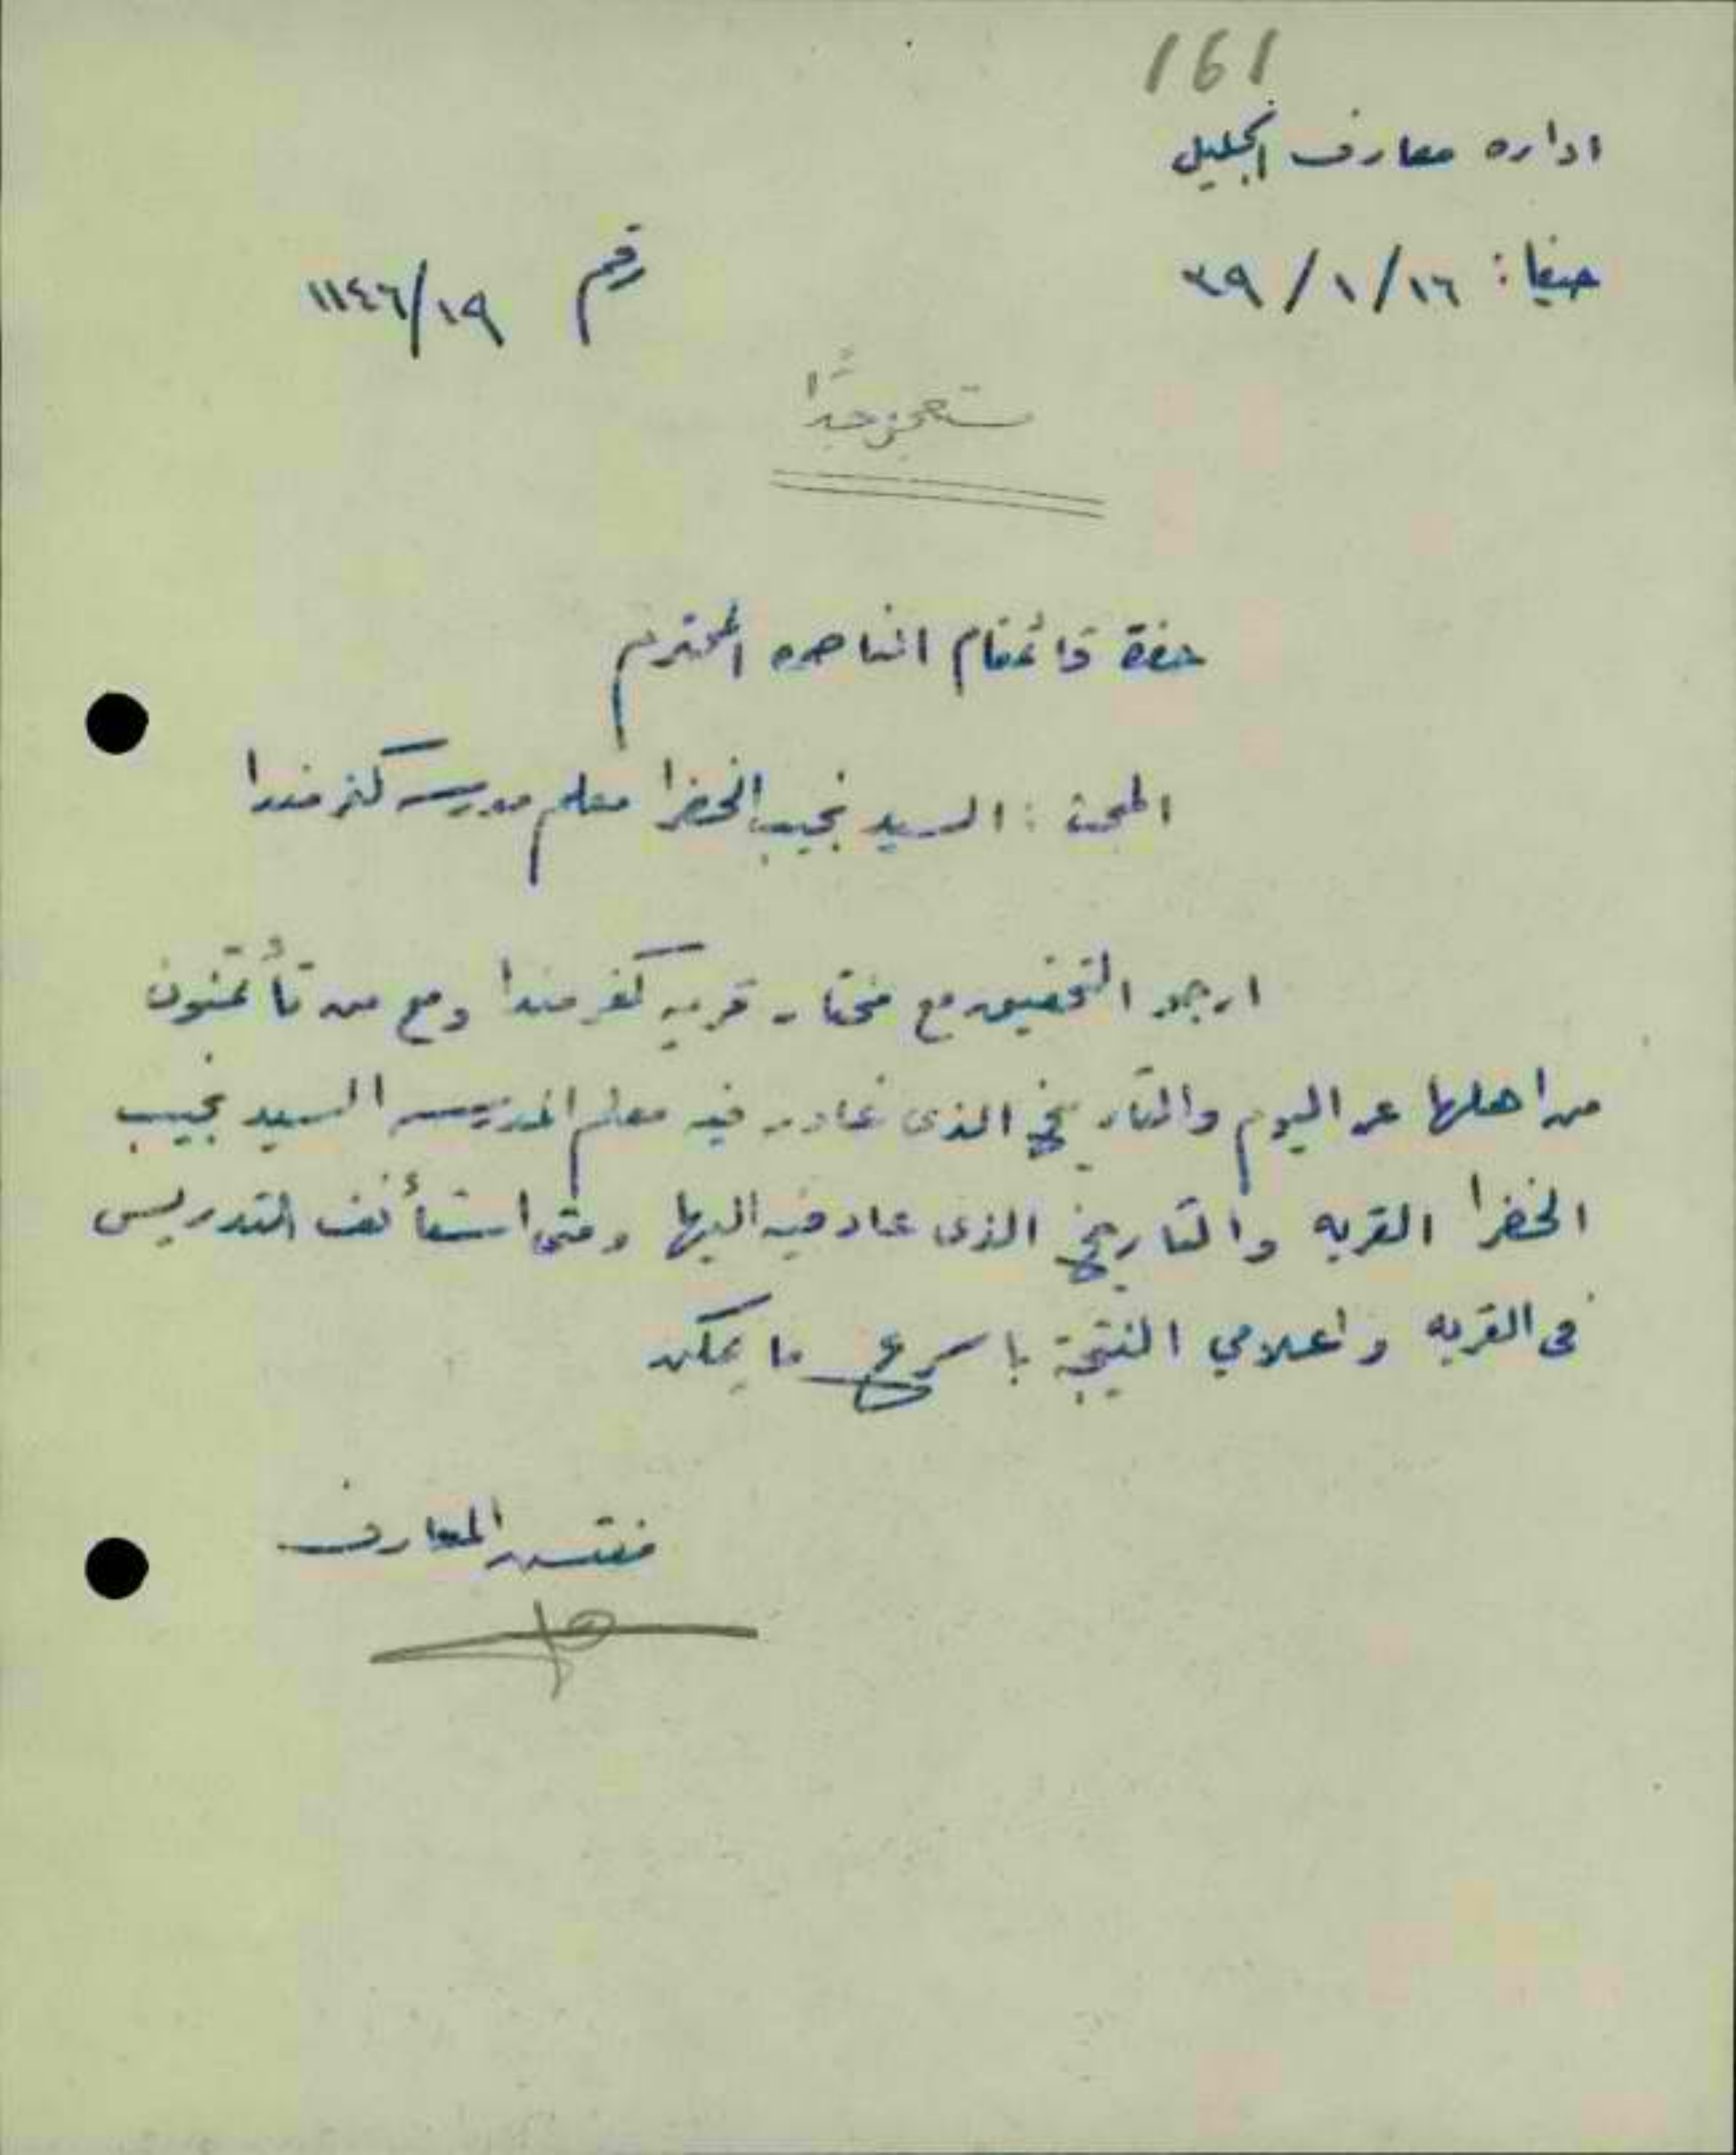 161
اداره معارف الجليل
حيفا: ١٦/١/٣٩
رقم ١١٤٦/١٩
مستعجل جدًّا
حضرة قائمقام الناصره المحترم
المبحث: السيد نجيب الخضرا معلم مدرسه كفر مندا
ارجو التحقيق مع مختار قريه كفر مندا ومع من تأتمنون
من اهلها عن اليوم والتاريخ الذى غادر فيه معلم المدرسه السيد نجيب
الخضرا القريه والتاريخ الذى عاد فيه اليها ومتى استأنف التدريس
فى القريه واعلامي النتيجة باسرع ما يمكن
مفتش المعارف